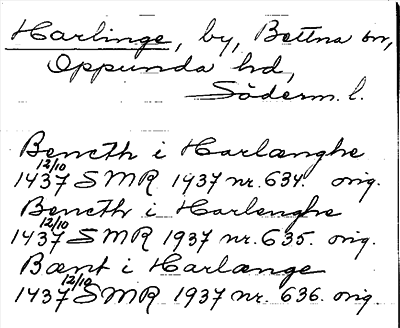 Harlinge, by, Bettna sn,
Oppunda hd,
Söderm. l.
Beneth i Harlænghe
1437 12/10 SMR 1937 nr. 634. orig.
Beneth i Harlenghe
1437 12/10 SMR 1937 nr. 635. orig.
Bænt i Harlænge
1437 12/10 SMR 1937 nr. 636. orig.